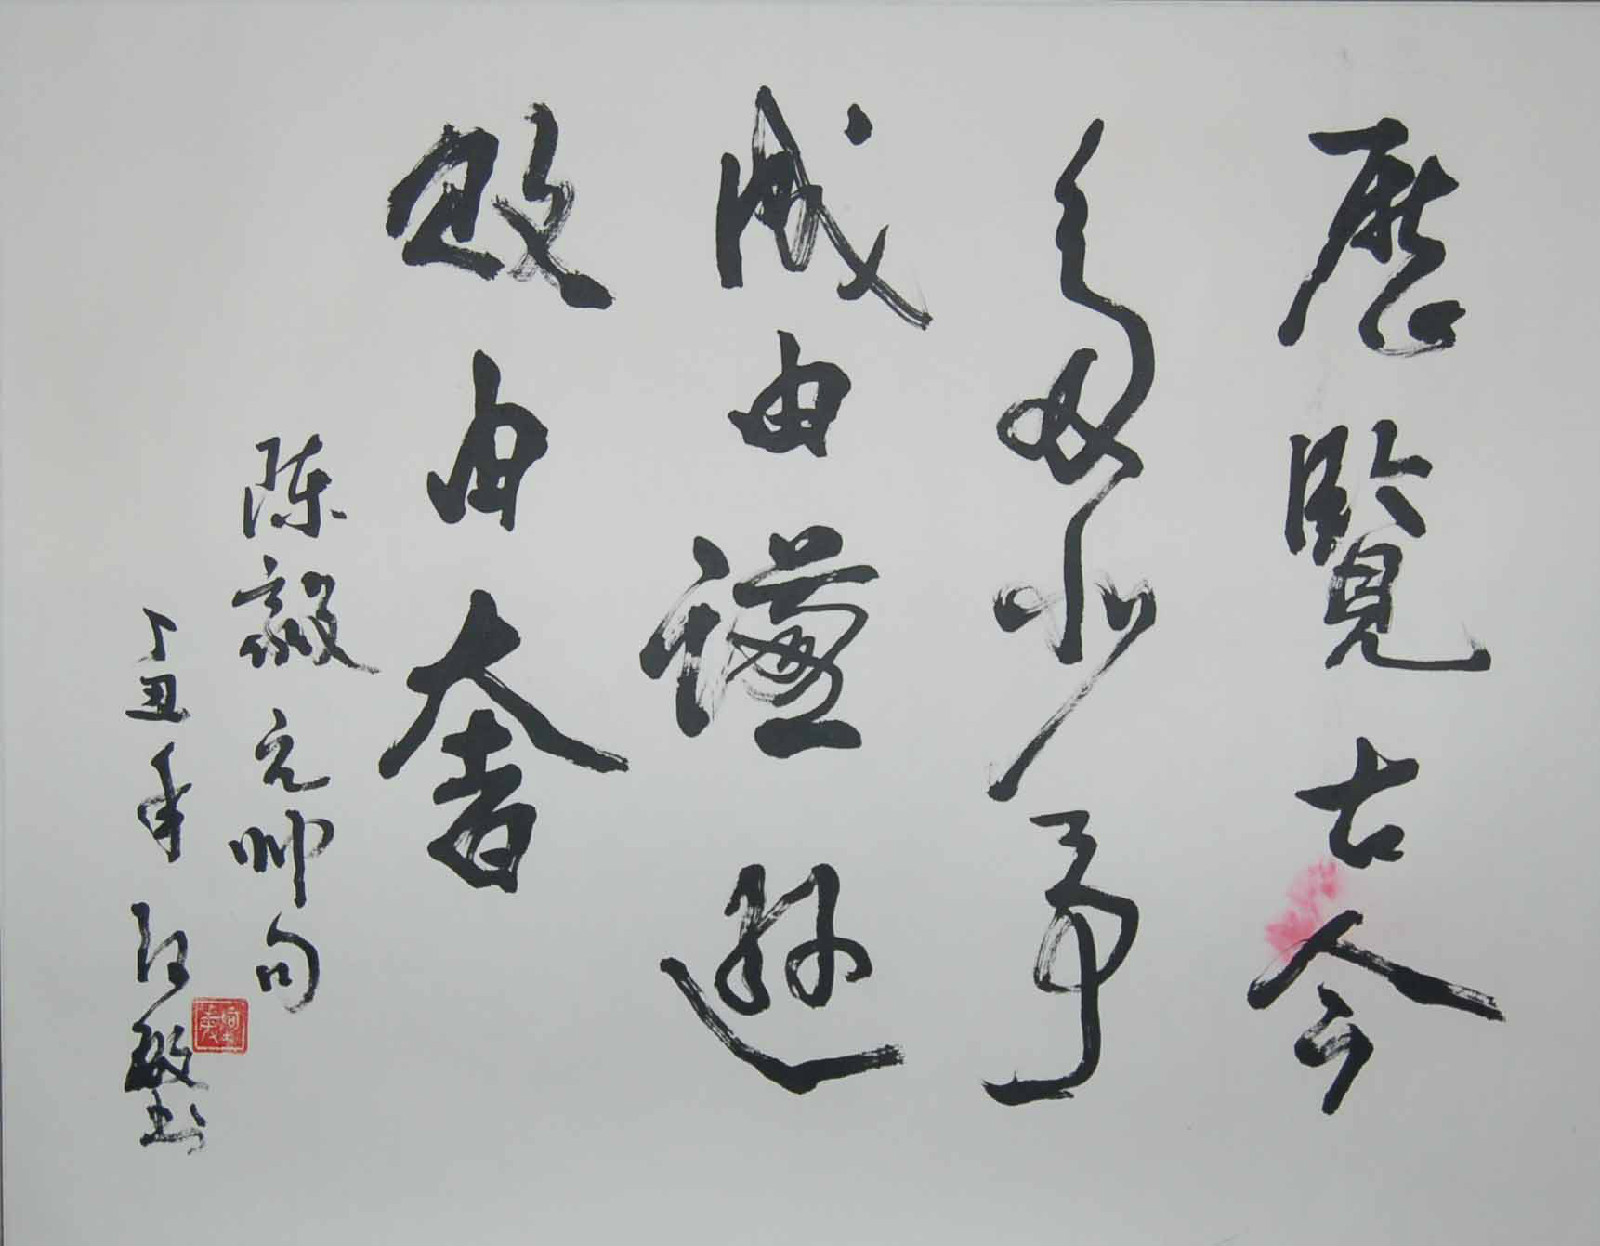 歷覽古今
多少事
成由謙遜
敗由奢
陈毅元帅句
丁丑年 书